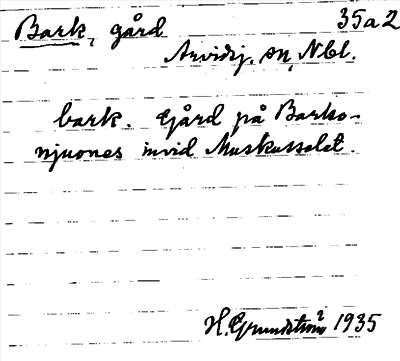 Bark, gård 35a2
Arvidsj. sn, Nbl.
bark. Gård på Barko-
njuones invid Muskusselet.
H. Grundström 1935